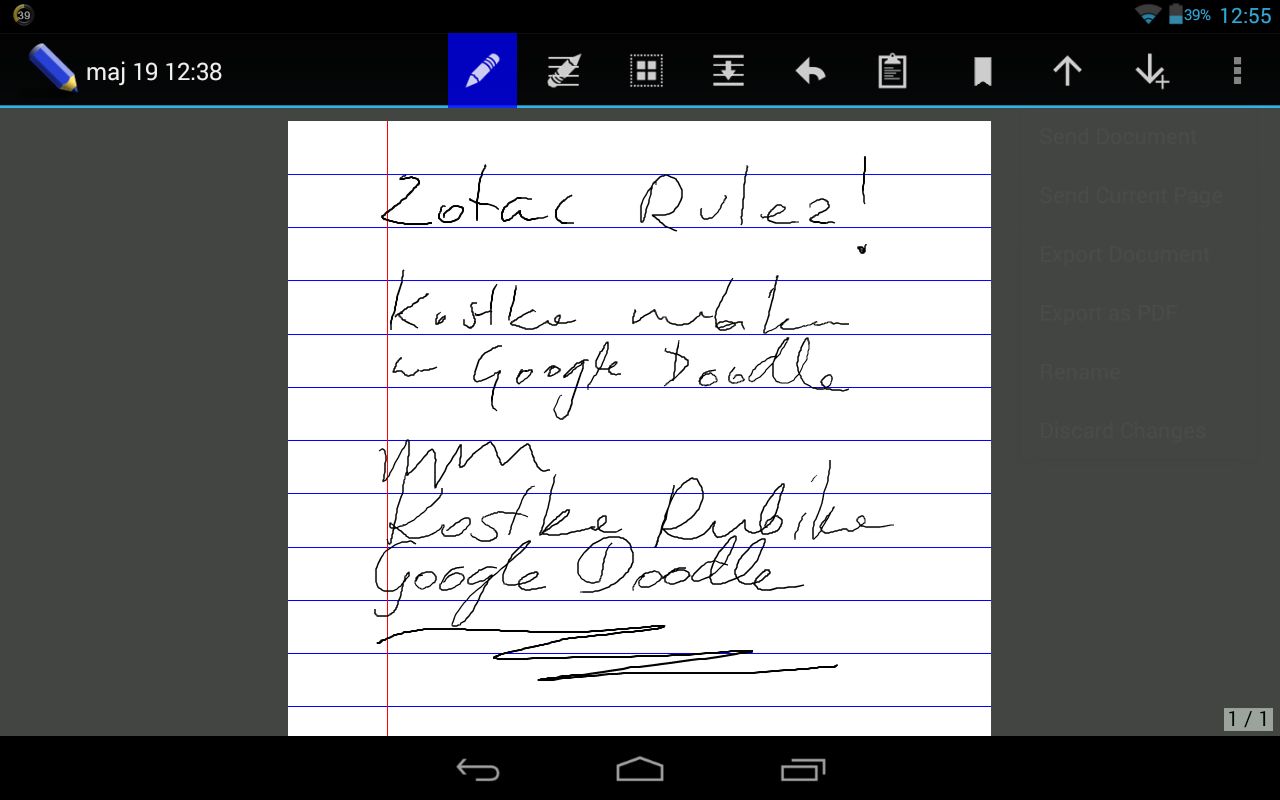 39
39% 12:55
maj 19 12:38
Send Document
Send Current Page
Export Document
Export as PDF
Rename
Discard Changes
Zotac Rulez!
Kostka rubika
w Google Doodle
Kostka Rubika
Google Doodle
1 / 1